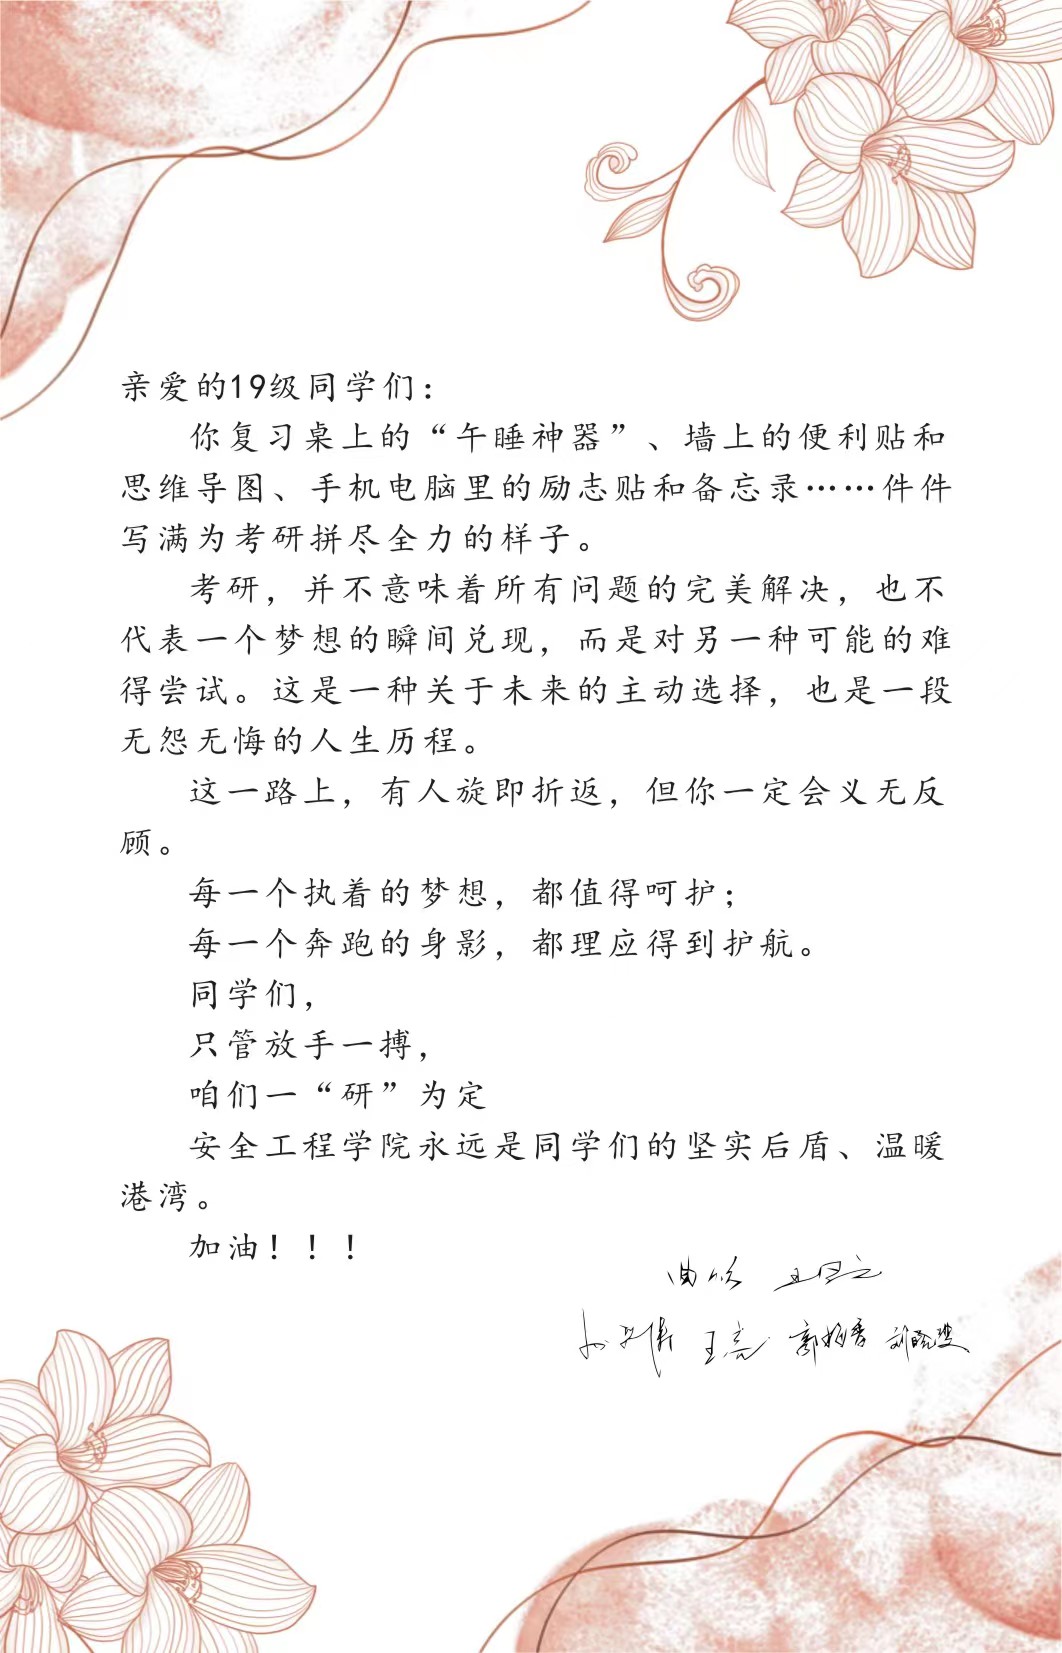 亲爱的19级同学们：
你复习桌上的“午睡神器”、墙上的便利贴和
思维导图、手机电脑里的励志贴和备忘录……件件
写满为考研拼尽全力的样子。
考研，并不意味着所有问题的完美解决，也不
代表一个梦想的瞬间兑现，而是对另一种可能的难
得尝试。这是一种关于未来的主动选择，也是一段
无怨无悔的人生历程。
这一路上，有人旋即折返，但你一定会义无反
顾。
每一个执着的梦想，都值得呵护；
每一个奔跑的身影，都理应得到护航。
同学们，
只管放手一搏，
咱们一“研”为定
安全工程学院永远是同学们的坚实后盾、温暖
港湾。
加油！！！
王亮